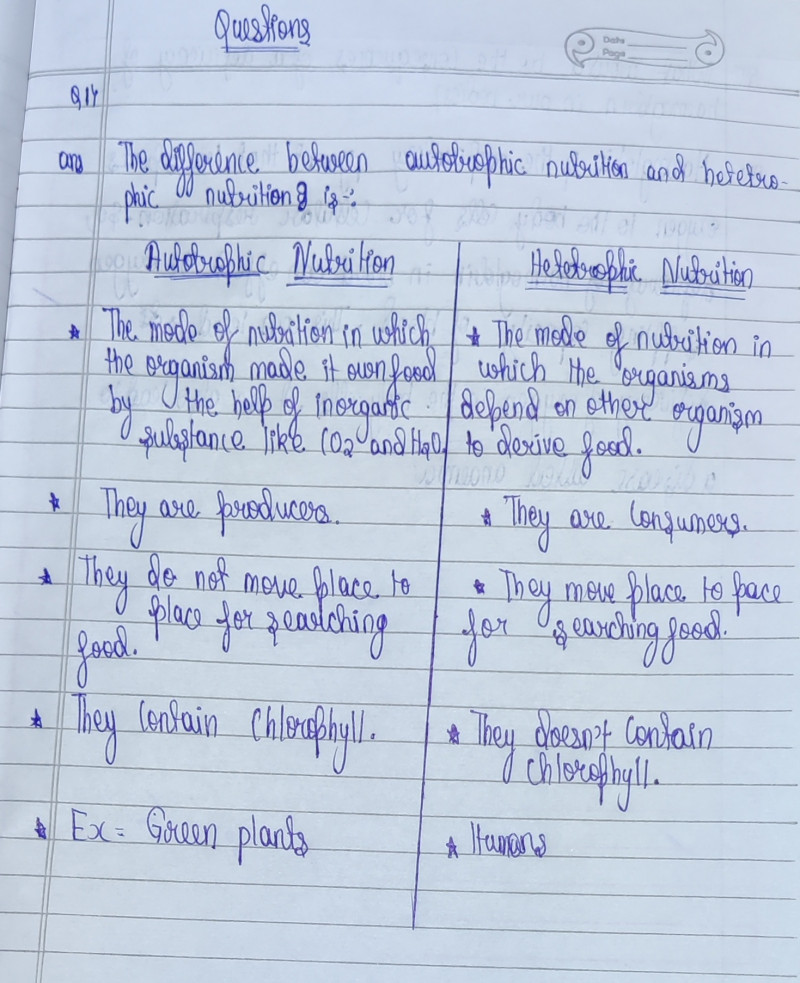 Questions
Date
Page
Q14
ans The difference between autotrophic nutrition and hetetro-
phic nutrition is :-
Autotrophic Nutrition
Hetetrophic Nutrition
* The mode of nutrition in which
the organism made it own food
by the help of inorganic
substance like CO2 and H2O
* The mode of nutrition in
which the organisms
depend on other organism
to derive food.
* They are producers.
* They are Consumers.
* They do not move place to
place for searching
food.
* They move place to pace
for searching food.
* They Contain Chlorophyll.
* They doesn't Contain
Chlorophyll.
* Ex = Green plants
* Humans